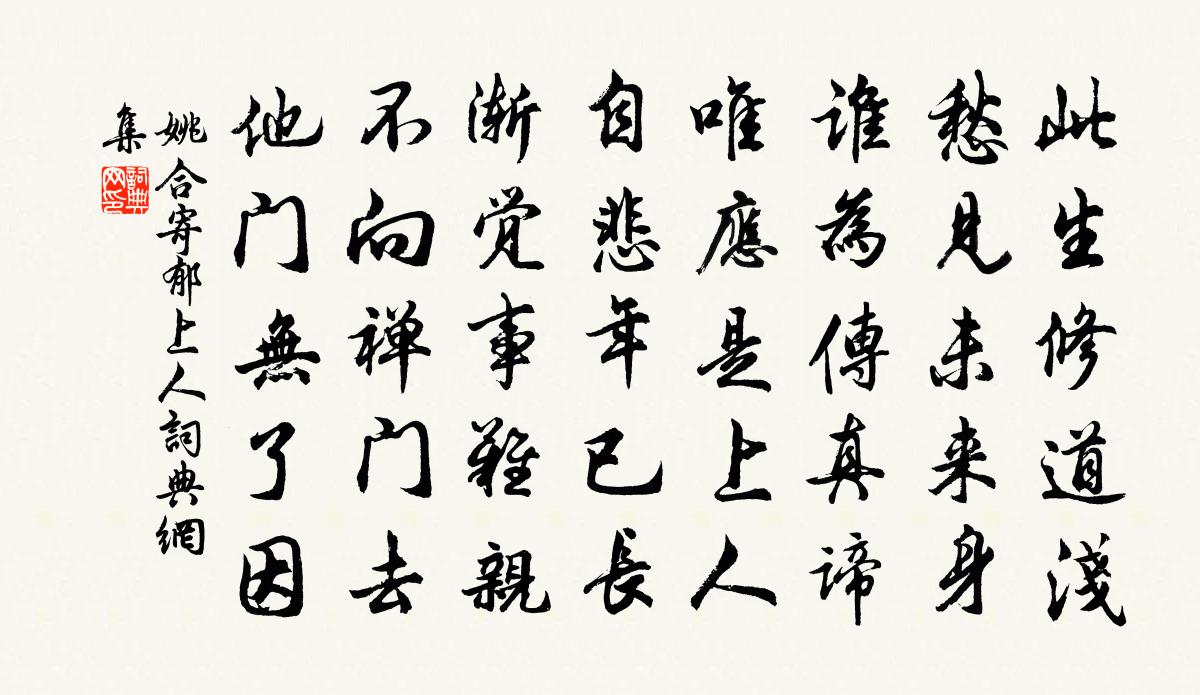 此生修道淺
愁見未来身
谁為傳真諦
唯應是上人
自悲年已長
渐觉事難親
不向禅门去
他门無了因
姚合寄郁上人詞典網
集
詞典
网印